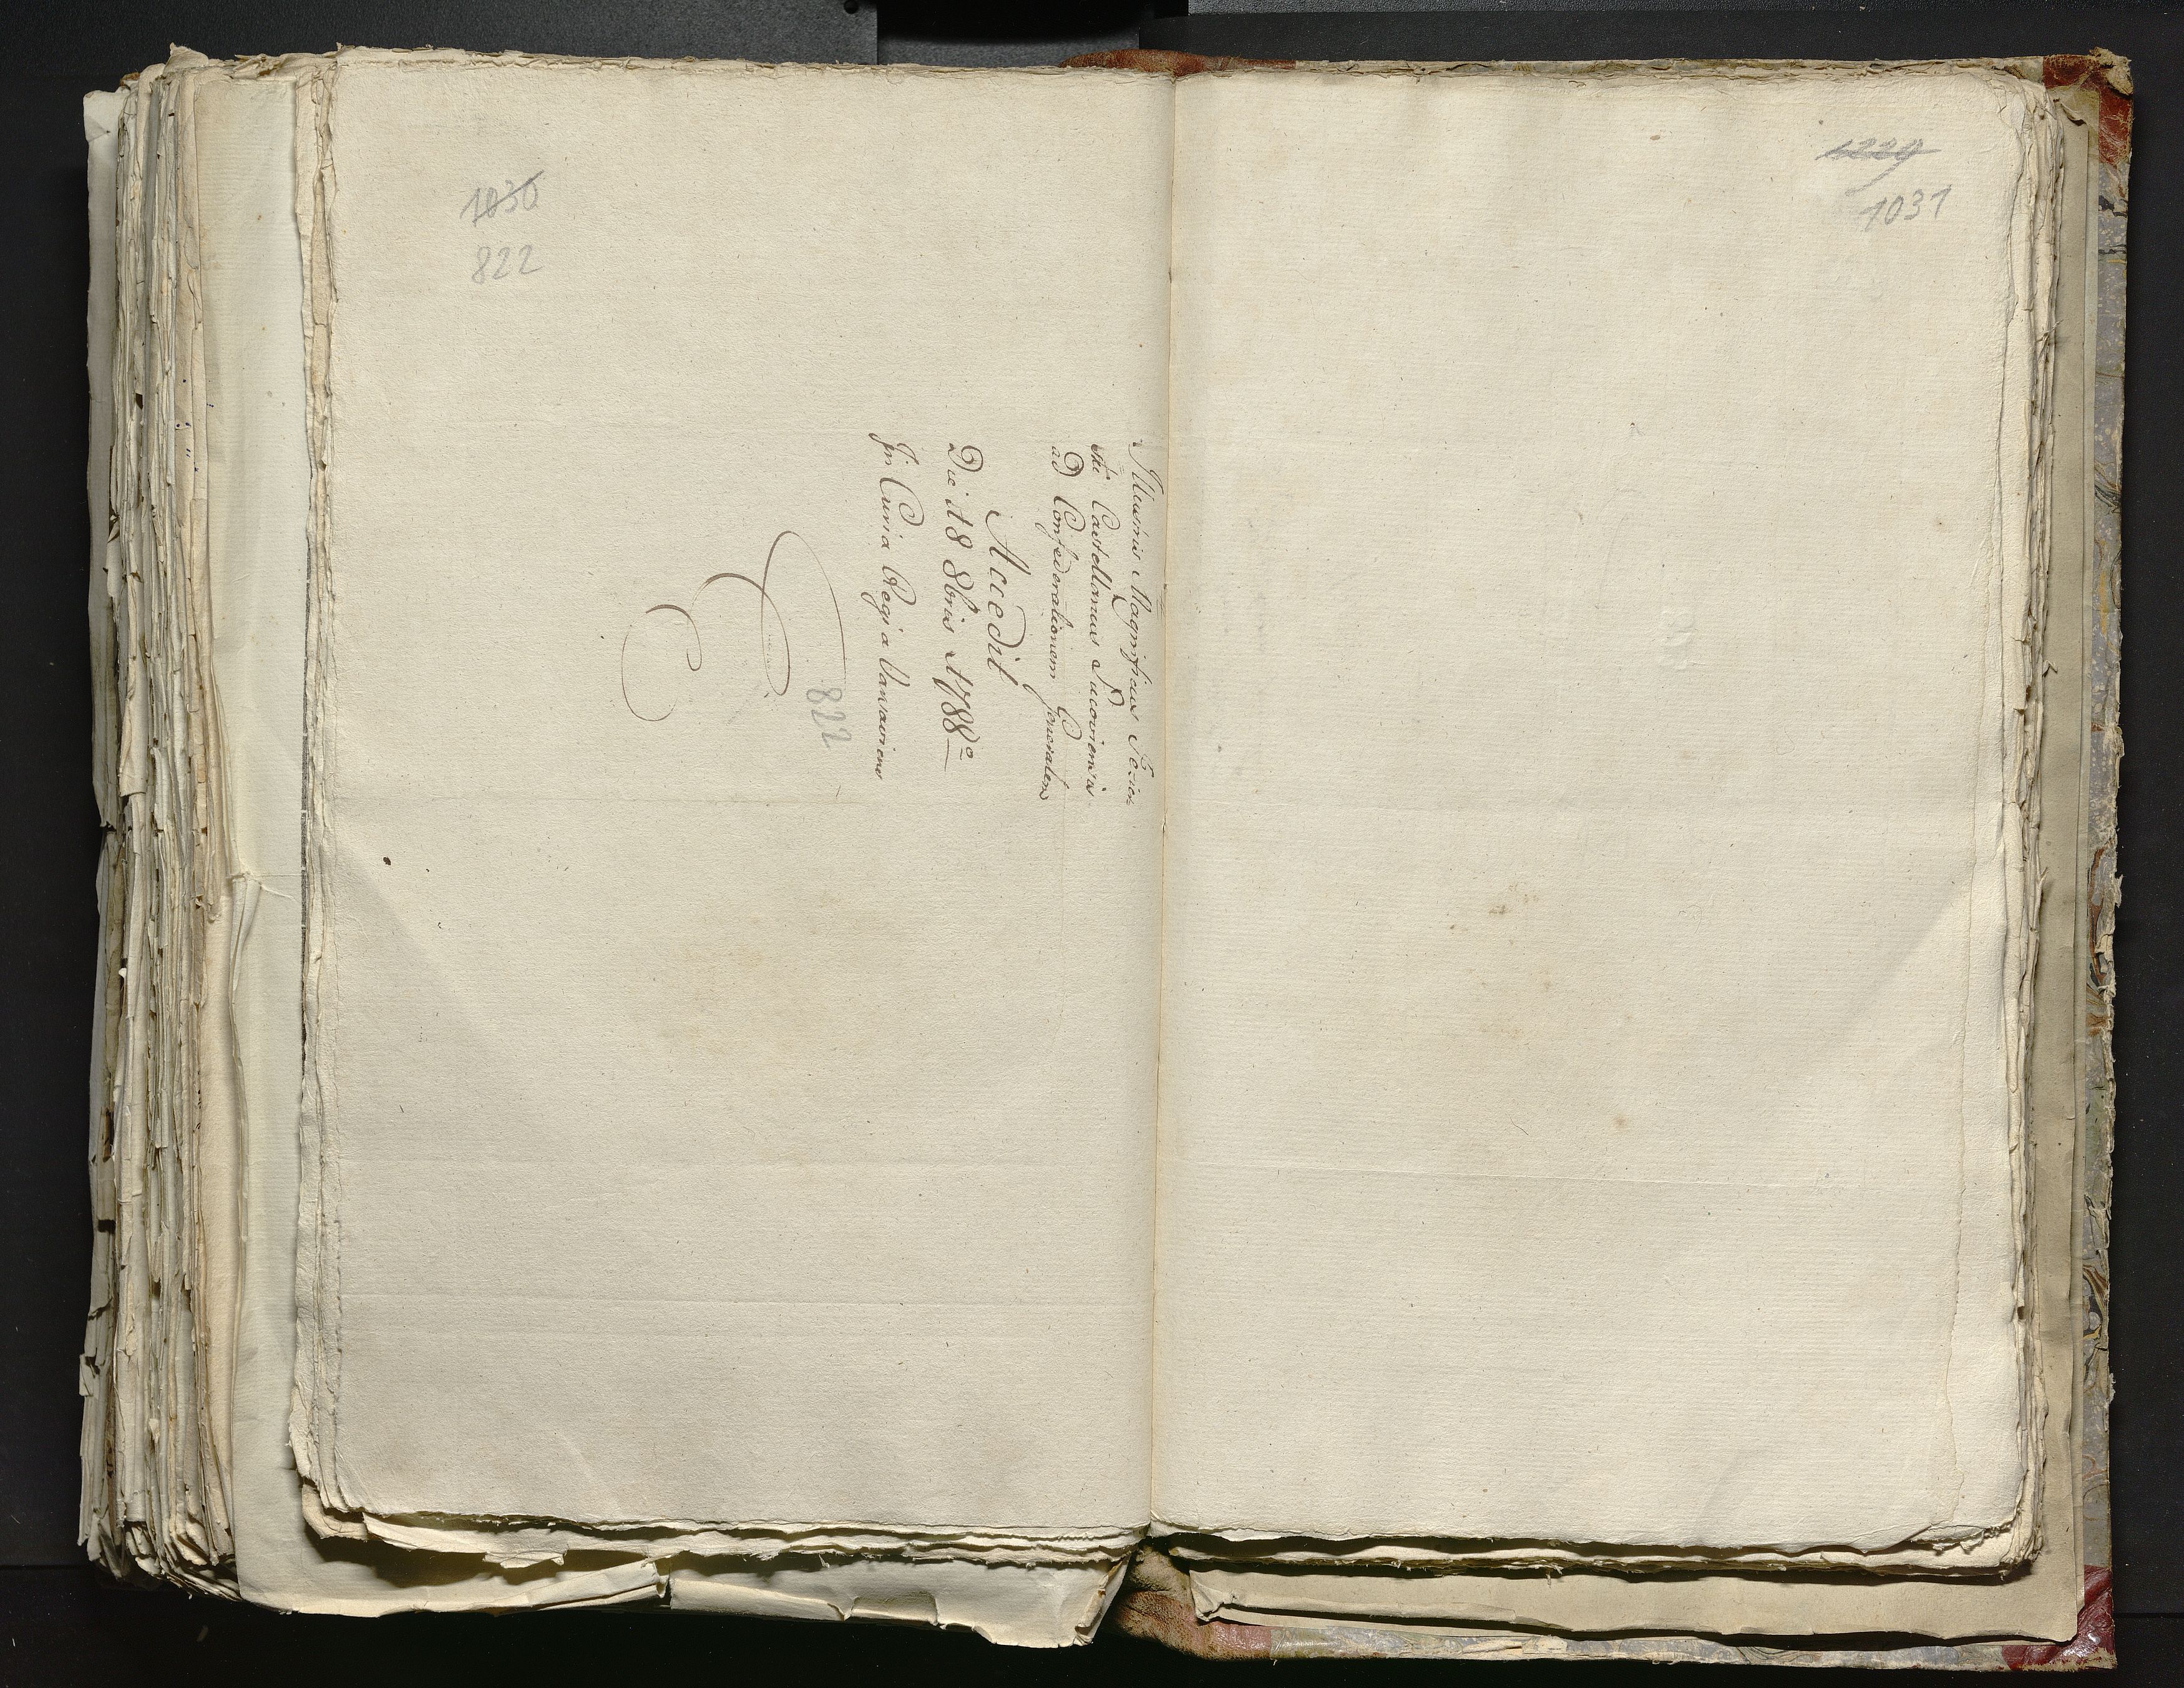 1030
822
Illustris Magnificus Jezier
ski Castellanus Lucoviensis
ad Confederationem Generalem
Accedit
Die 18 8bris 1788o
In Curia Regia Varsaviens
822
1229
1031